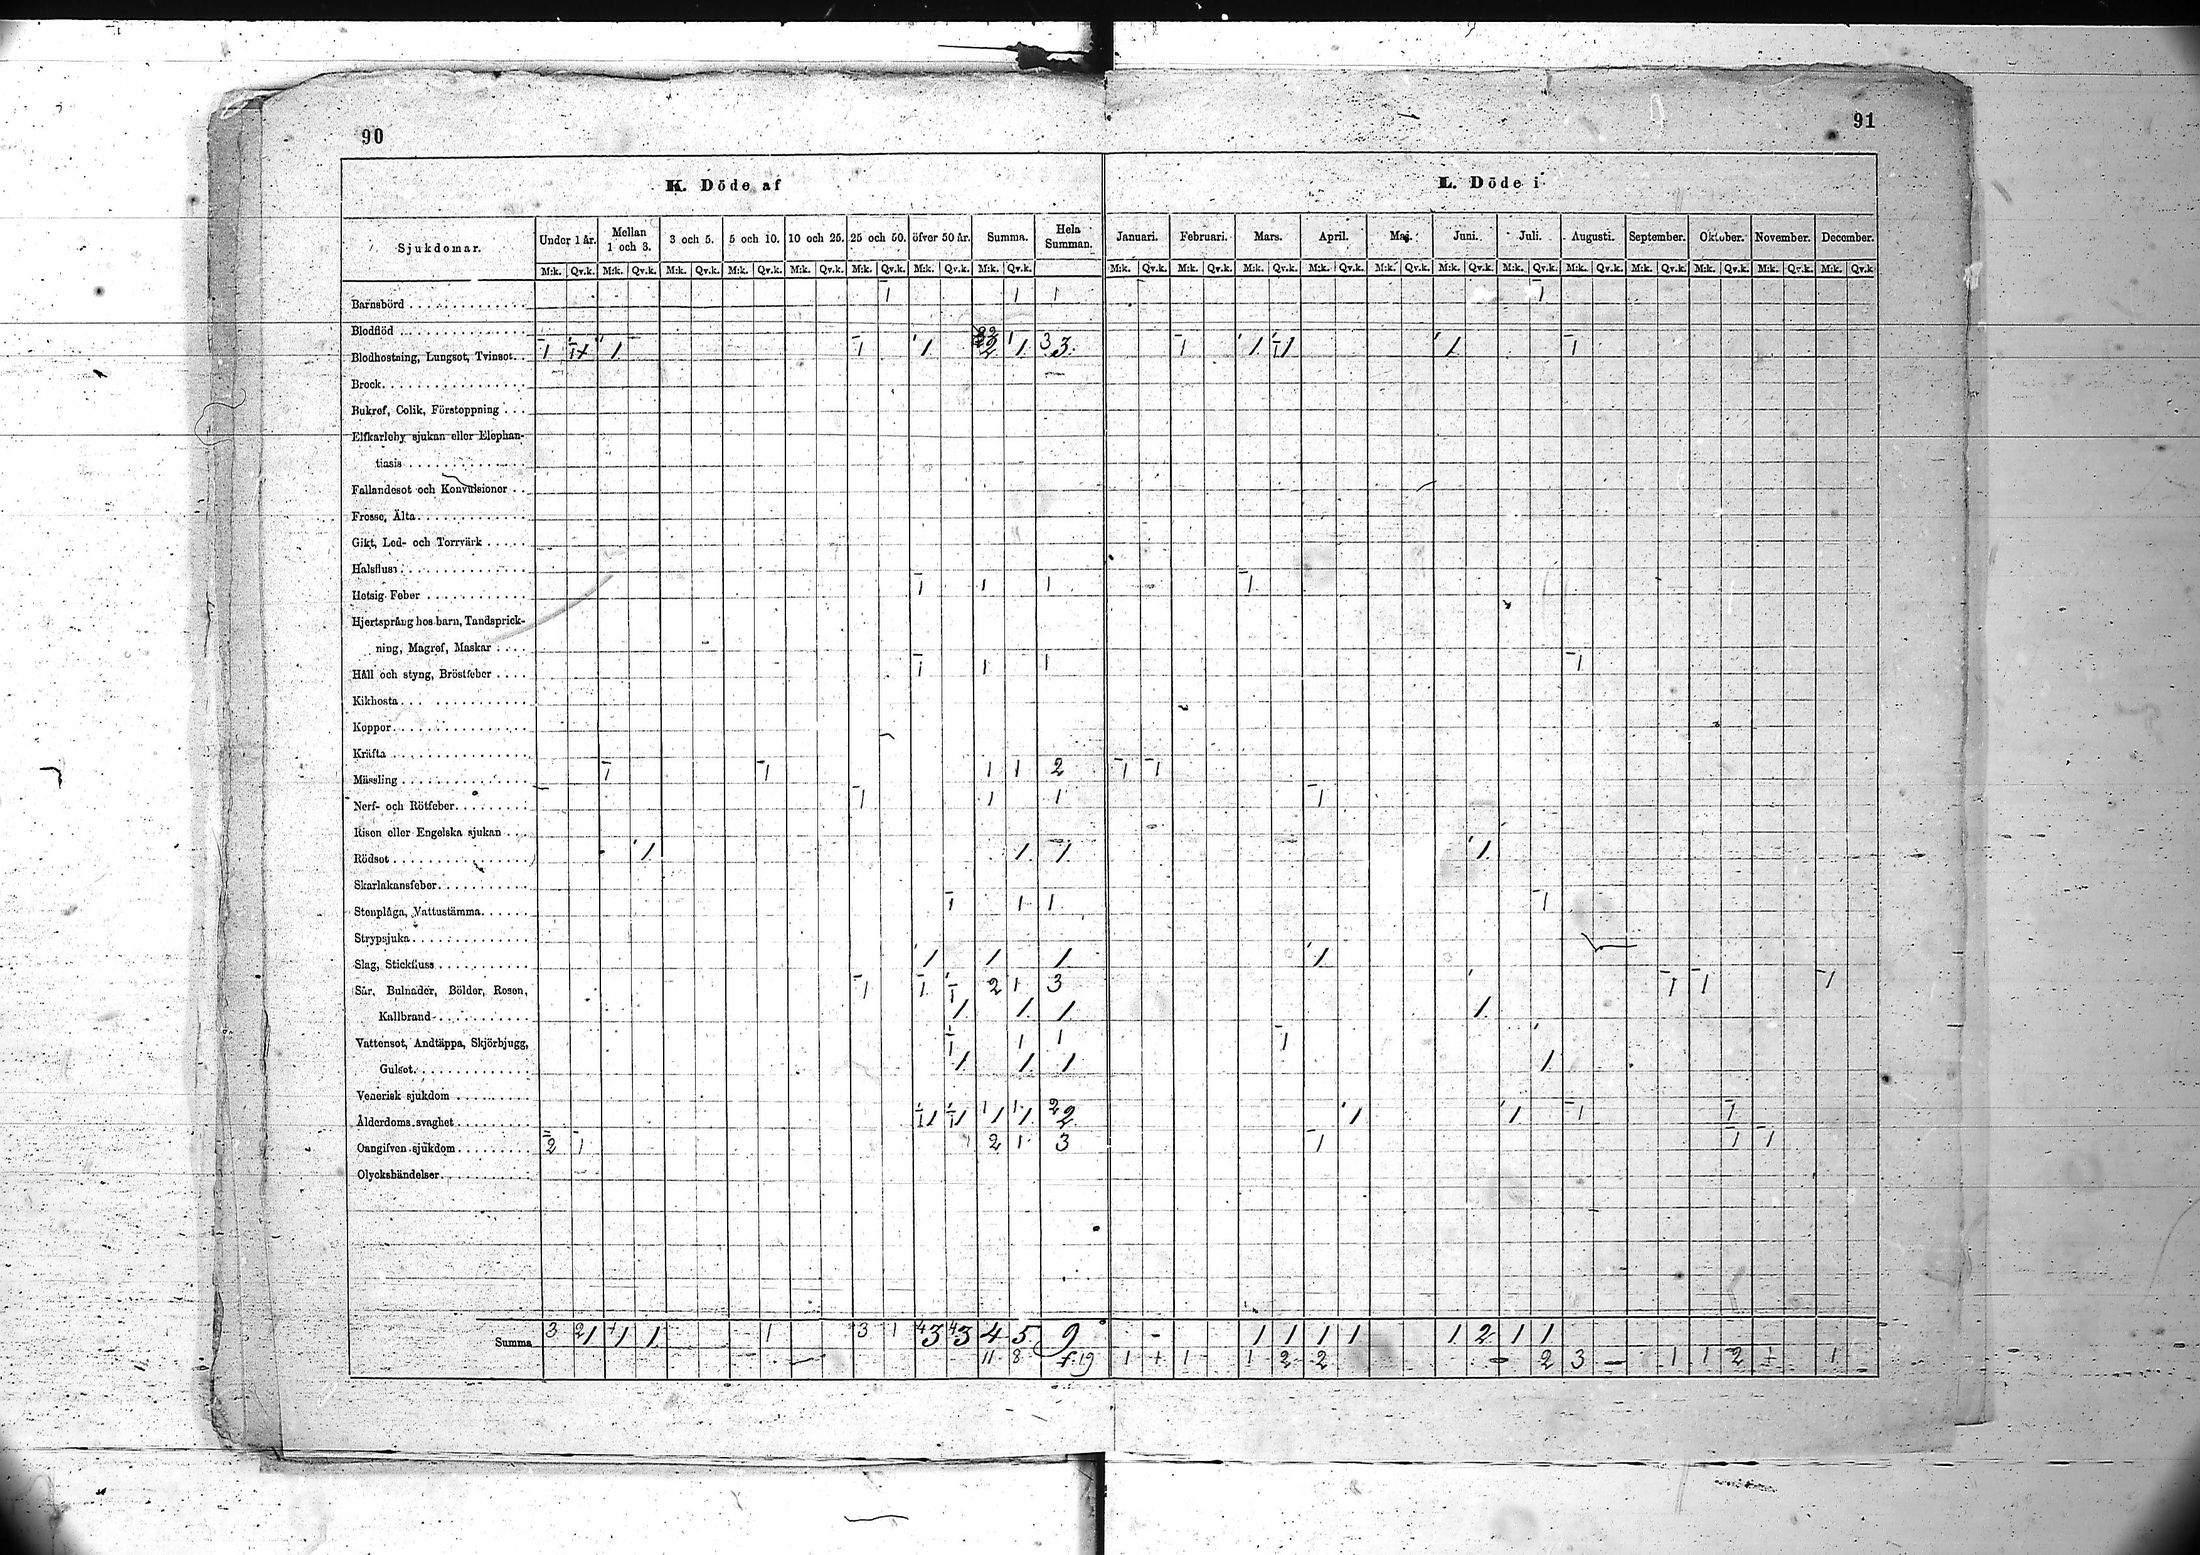 90
91
K. Döde af
L. Döde i
Sjukdomar. Under 1 år. Mellan 1 och 3. 3 och 5. 5 och 10. 10 och 25. 25 och 50. öfver 50 år. Summa. Hela Summan. Januari. Februari. Mars. April. Maj. Juni. Juli. Augusti. September. Oktober. November. December.
M:k. Qv.k. M:k. Qv.k. M:k. Qv.k. M:k. Qv.k. M:k. Qv.k. M:k. Qv.k. M:k. Qv.k. M:k. Qv.k. M:k. Qv.k. M:k. Qv.k. M:k. Qv.k. M:k. Qv.k. M:k. Qv.k. M:k. Qv.k. M:k. Qv.k. M:k. Qv.k. M:k. Qv.k. M:k. Qv.k. M:k. Qv.k. M:k. Qv.k
Barnsbörd 1 1 1 1
Blodflöd
Blodhostning, Lungsot, Tvinsot. 1 1 1 1 2 1 3 3. 1 1 1 1 1 1
Brock
Bukref, Colik, Förstoppning
Elfkarleby sjukan eller Elephan-
tiasis
Fallandesot och Konvulsioner
Frosse, Älta
Gikt, Led- och Torrvärk
Halsfluss
Hetsig Feber 1 1 1 1
Hjertsprång hos barn, Tandsprick-
ning, Magref, Maskar
Håll och styng, Bröstfeber 1 1 1 1
Kikhosta
Koppor
Kräfta
Mässling 1 1 1 1 2 1 1
Nerf- och Rötfeber 1 1 1 1
Risen eller Engelska sjukan
Rödsot 1 1 1 1
Skarlakansfeber
Stenplåga, Vattustämma 1 1 1 1
Strypsjuka
Slag, Stickfluss 1 1 1 1
Sår, Bulnader, Bölder, Rosen, 1 1 1 2 1 3 1 1 1
Kallbrand 1 1 1 1
Vattensot, Andtäppa, Skjörbjugg, 1 1 1 1
Gulsot 1 1 1 1
Venerisk sjukdom
Ålderdoms svaghet 1 1 1 1 1 1 1 1 2 2 1 1 1 1
Oangifven sjukdom 2 1 2 1 3 1 1 1
Olyckshändelser
Summa 3 2 1 1 1 1 1 3 1 4 3 4 3 4 5 9 1 1 1 1 1 2 1 1
11 8 19 1 1 1 1 2 2 2 3 1 1 2 1 1